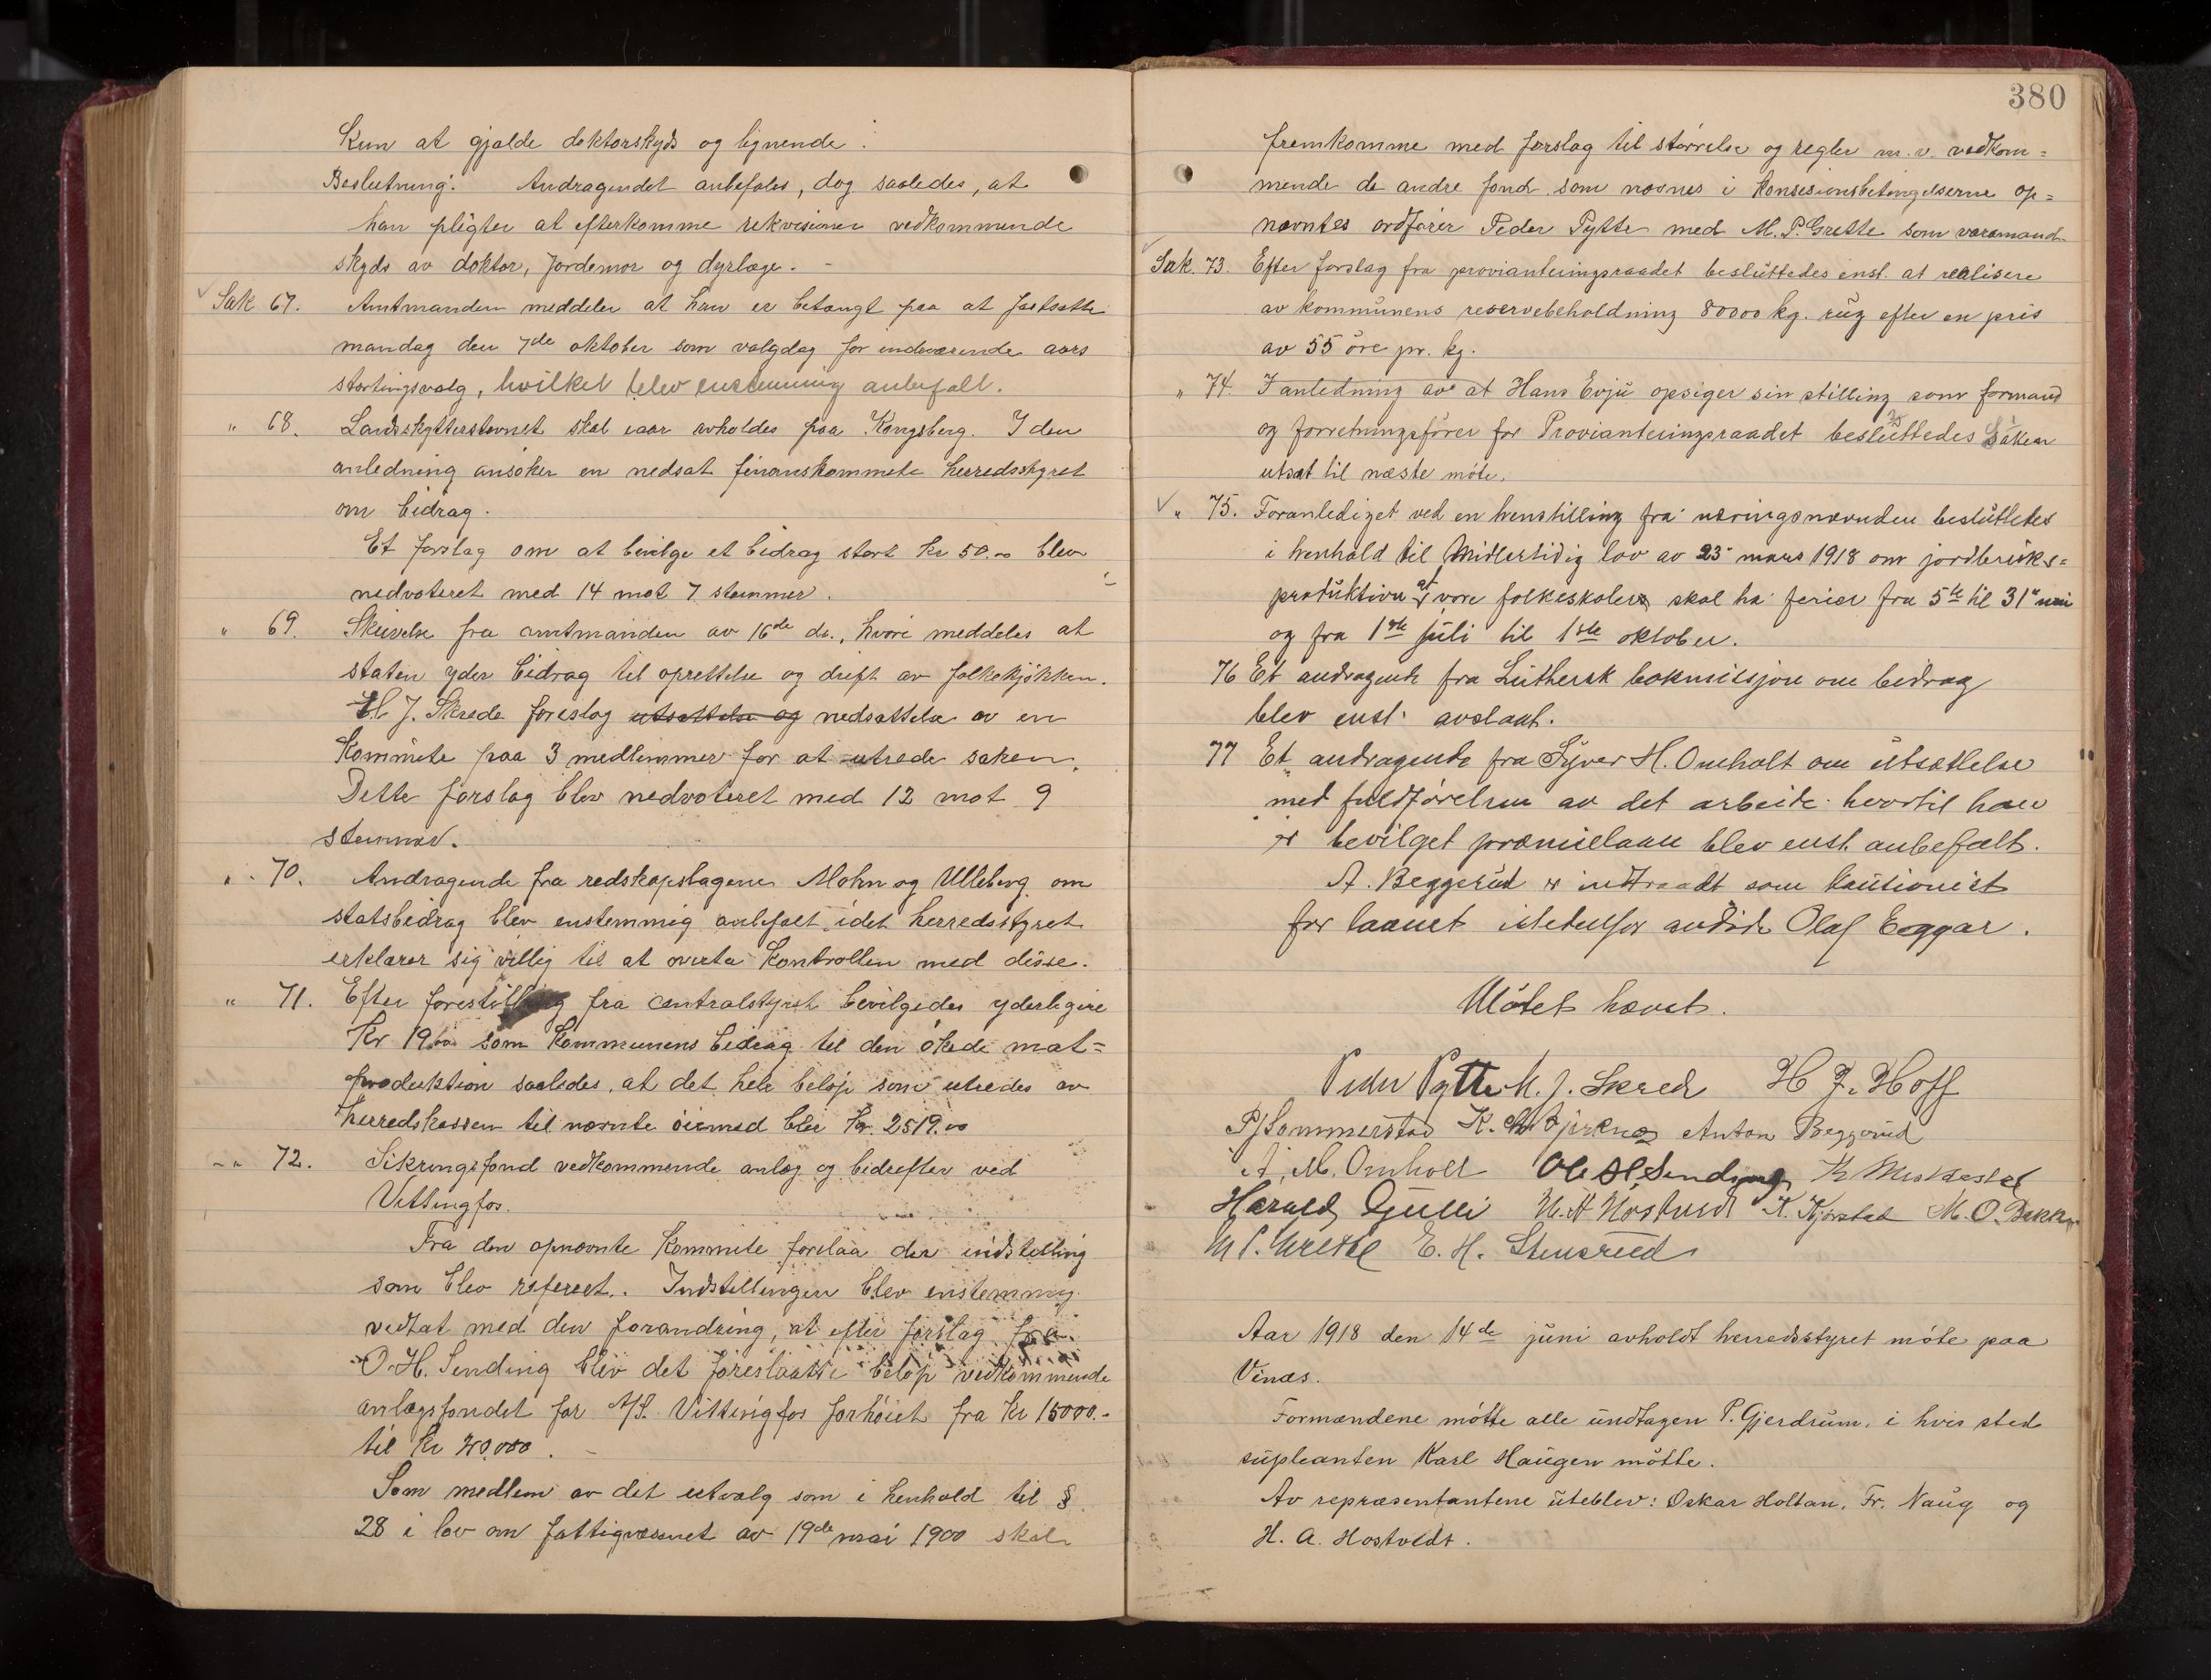 Kun at gjælde doktorskyds og lignende.
Beslutning: Andragendet anbefales, dog saaledes, at
han pligter at efterkomme rekvisioner vedkommende
skyds av doktor, jordemor og dyrlæge. -
Sak 67. Amtmanden meddeler at han er betængt paa at fastsætte
mandag den 7de oktober som valgdag for indeværende aars
stortingsvalg, hvilket blev enstemmig anbefalt.
" 68. Landsskytterstevnet skal iaar avholdes paa Kongsberg. I den
anledning ansøker en nedsat finanskommite herredsstyret
om bidrag.
Et forslag om at bevilge et bidrag stort kr 50.00 blev
nedvoteret med 14 mot 7 stemmer.
" 69. Skrivelse fra amtmanden av 16de ds., hvori meddeles at
staten yder bidrag til oprettelse og drift av folkekjøkken.
H J. Skrede foreslog utsættelse og nedsættelse av en
Kommite paa 3 medlemmer for at utrede saken.
Dette forslag blev nedvoteret med 12 mot 9
stemmer.
" 70. Andragende fra redskapslagene Mohn og Ulleberg om
statsbidrag blev enstemmig anbefalt idet herredsstyret
erklærer sig villig til at overta Kontrollen med disse.
" 71. Efter forestilling fra centralstyret bevilgedes yderligere
Kr som Kommunens bidrag til den økede mat=
produktion saaledes, at det hele beløp som utredes av
herredskassen til nævnte øiemed blir kr. 2519.00
" 72. Sikringsfond vedkommende anlæg og bidrefter ved
Vittingfos.
Fra den opnævnte Kommite forelaa der indstilling
som blev referert. Indstillingen blev enstemmig
vedtat med den forandring, at efter forslag fra
O. H. Sending blev det foreslaatte beløp vedkommende
anlægsfondet for A/S. Vittingfos forhøiet fra kr 15000.-
til kr 20,000. -
Som medlem av det utvalg som i henhold til §
28 i lov om fattigvæsnet av 19de mai 1900 skal
380
fremkomme med forslag til størrelse og regler m. v. vedkom=
mende de andre fond som nævnes i Konsesionsbetingelserne op=
nævntes ordfører Peder Pytte med M. P. Grette som varamand.
Sak. 73. Efter forslag fra provianteringsraadet besluttedes enst. at realisere
av kommunens reservebeholdning 80000 kg. rug efter en pris
av 55 øre pr. kg.
" 74. I anledning av at Hans Evju opsiger sin stilling som formand
og forretningsfører for Provianteringsraadet besluttedes saken
utsat til næste møte.
" 75. Foranlediget ved en henstilling fra næringsnævnden besluttedes
i henhold til Midlertidig lov av 23 mars 1918 om jordbruks=
produktion at vore folkeskoler skal ha ferier fra 5te til 31te mai
og fra 1ste juli til 1ste oktober.
76 Et andragende fra Luthersk bokmissjon om bidrag
blev enst. avslaat.
77 Et andragende fra Syver H. Omholt om utsættelse
med fuldførelsen av det arbeide hvortil han
er bevilget præmielaan blev enst. anbefalt.
A. Beggerud er indtraadt som kautionist
for laanet istedenfor avdøde Olaf Eggar.
Møtet hævet.
Peder Pytte H. J. Skrede H J. Hoff
P J Sommerstad K. Bjerknes Anton Beggerud
A. M. Omholt Ole H. Sending
Harald Gulli H. A Hostvedt K. Kjørstad M. O. Bakke
M P. Grette E. H. Stensrud
Aar 1918 den 14de juni avholdt herredsstyret møte paa
Vinæs.
Formændene møtte alle undtagen P. Gjerdrum, i hvis sted
supleanten Karl Haugen møtte.
Av repræsentantene uteblev: Oskar Holtan, Fr. Naug og
H. A. Hostvedt.